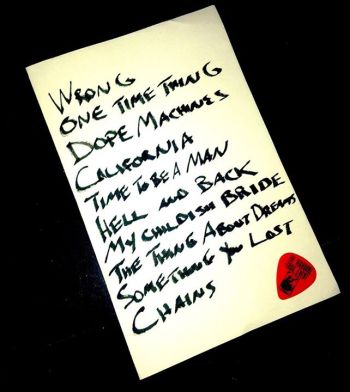 WRONG
ONE TIME THING
DOPE MACHINES
CALIFORNIA
TIME TO BE A MAN
HELL AND BACK
MY CHILDISH BRIDE
THE THING ABOUT DREAMS
SOMETHING YOU LOST
CHAINS